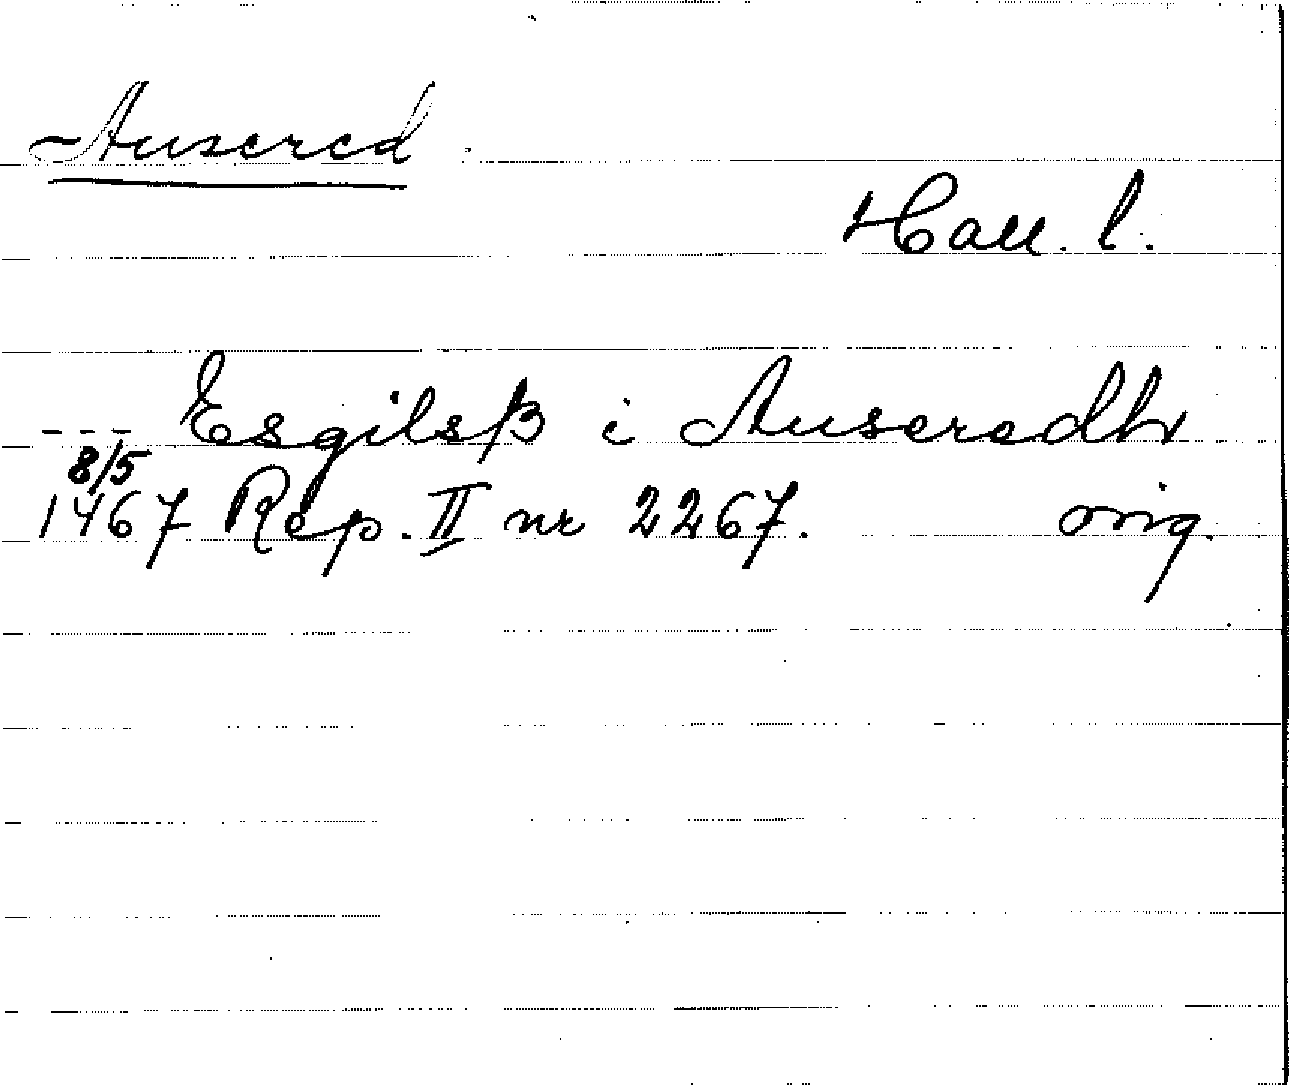 Ausered
Hall. l.
--- Esgilsß i Auseredh
8/5
1467 Rep. II nr 2267. orig.